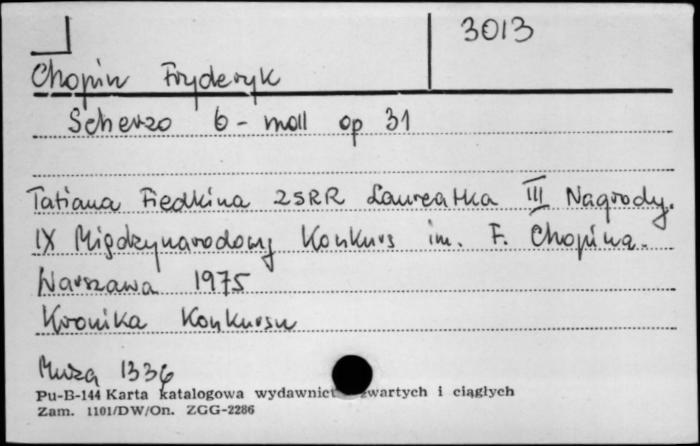 3013
Chopin Fryderyk
Scherzo b-moll op 31
Tatiana Fiedkina ZSRR Laureatka III Nagrody.
IX Międzynarodowy Konkurs im. F. Chopina.
Warszawa 1975
Kronika Konkursu
Muza 1336
Pu-B-144 Karta katalogowa wydawnict zwartych i ciągłych
Zam. 1101/DW/On. ZGG-2286